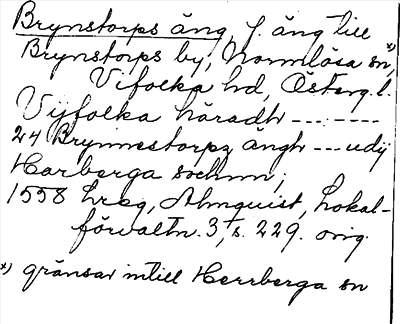 Brynstorps äng, f. äng till
Brynstorps by, Normlösa sn, *)
Vifolka hd, Österg. l.
Vijfolka häradh --- ----
24 Brynnestorpz ängh --- udij
Harberga sochnn;
1558 hreg, Almquist, Lokal-
förvaltn. 3†, s. 229. orig.
*) gränsar intill Herrberga sn